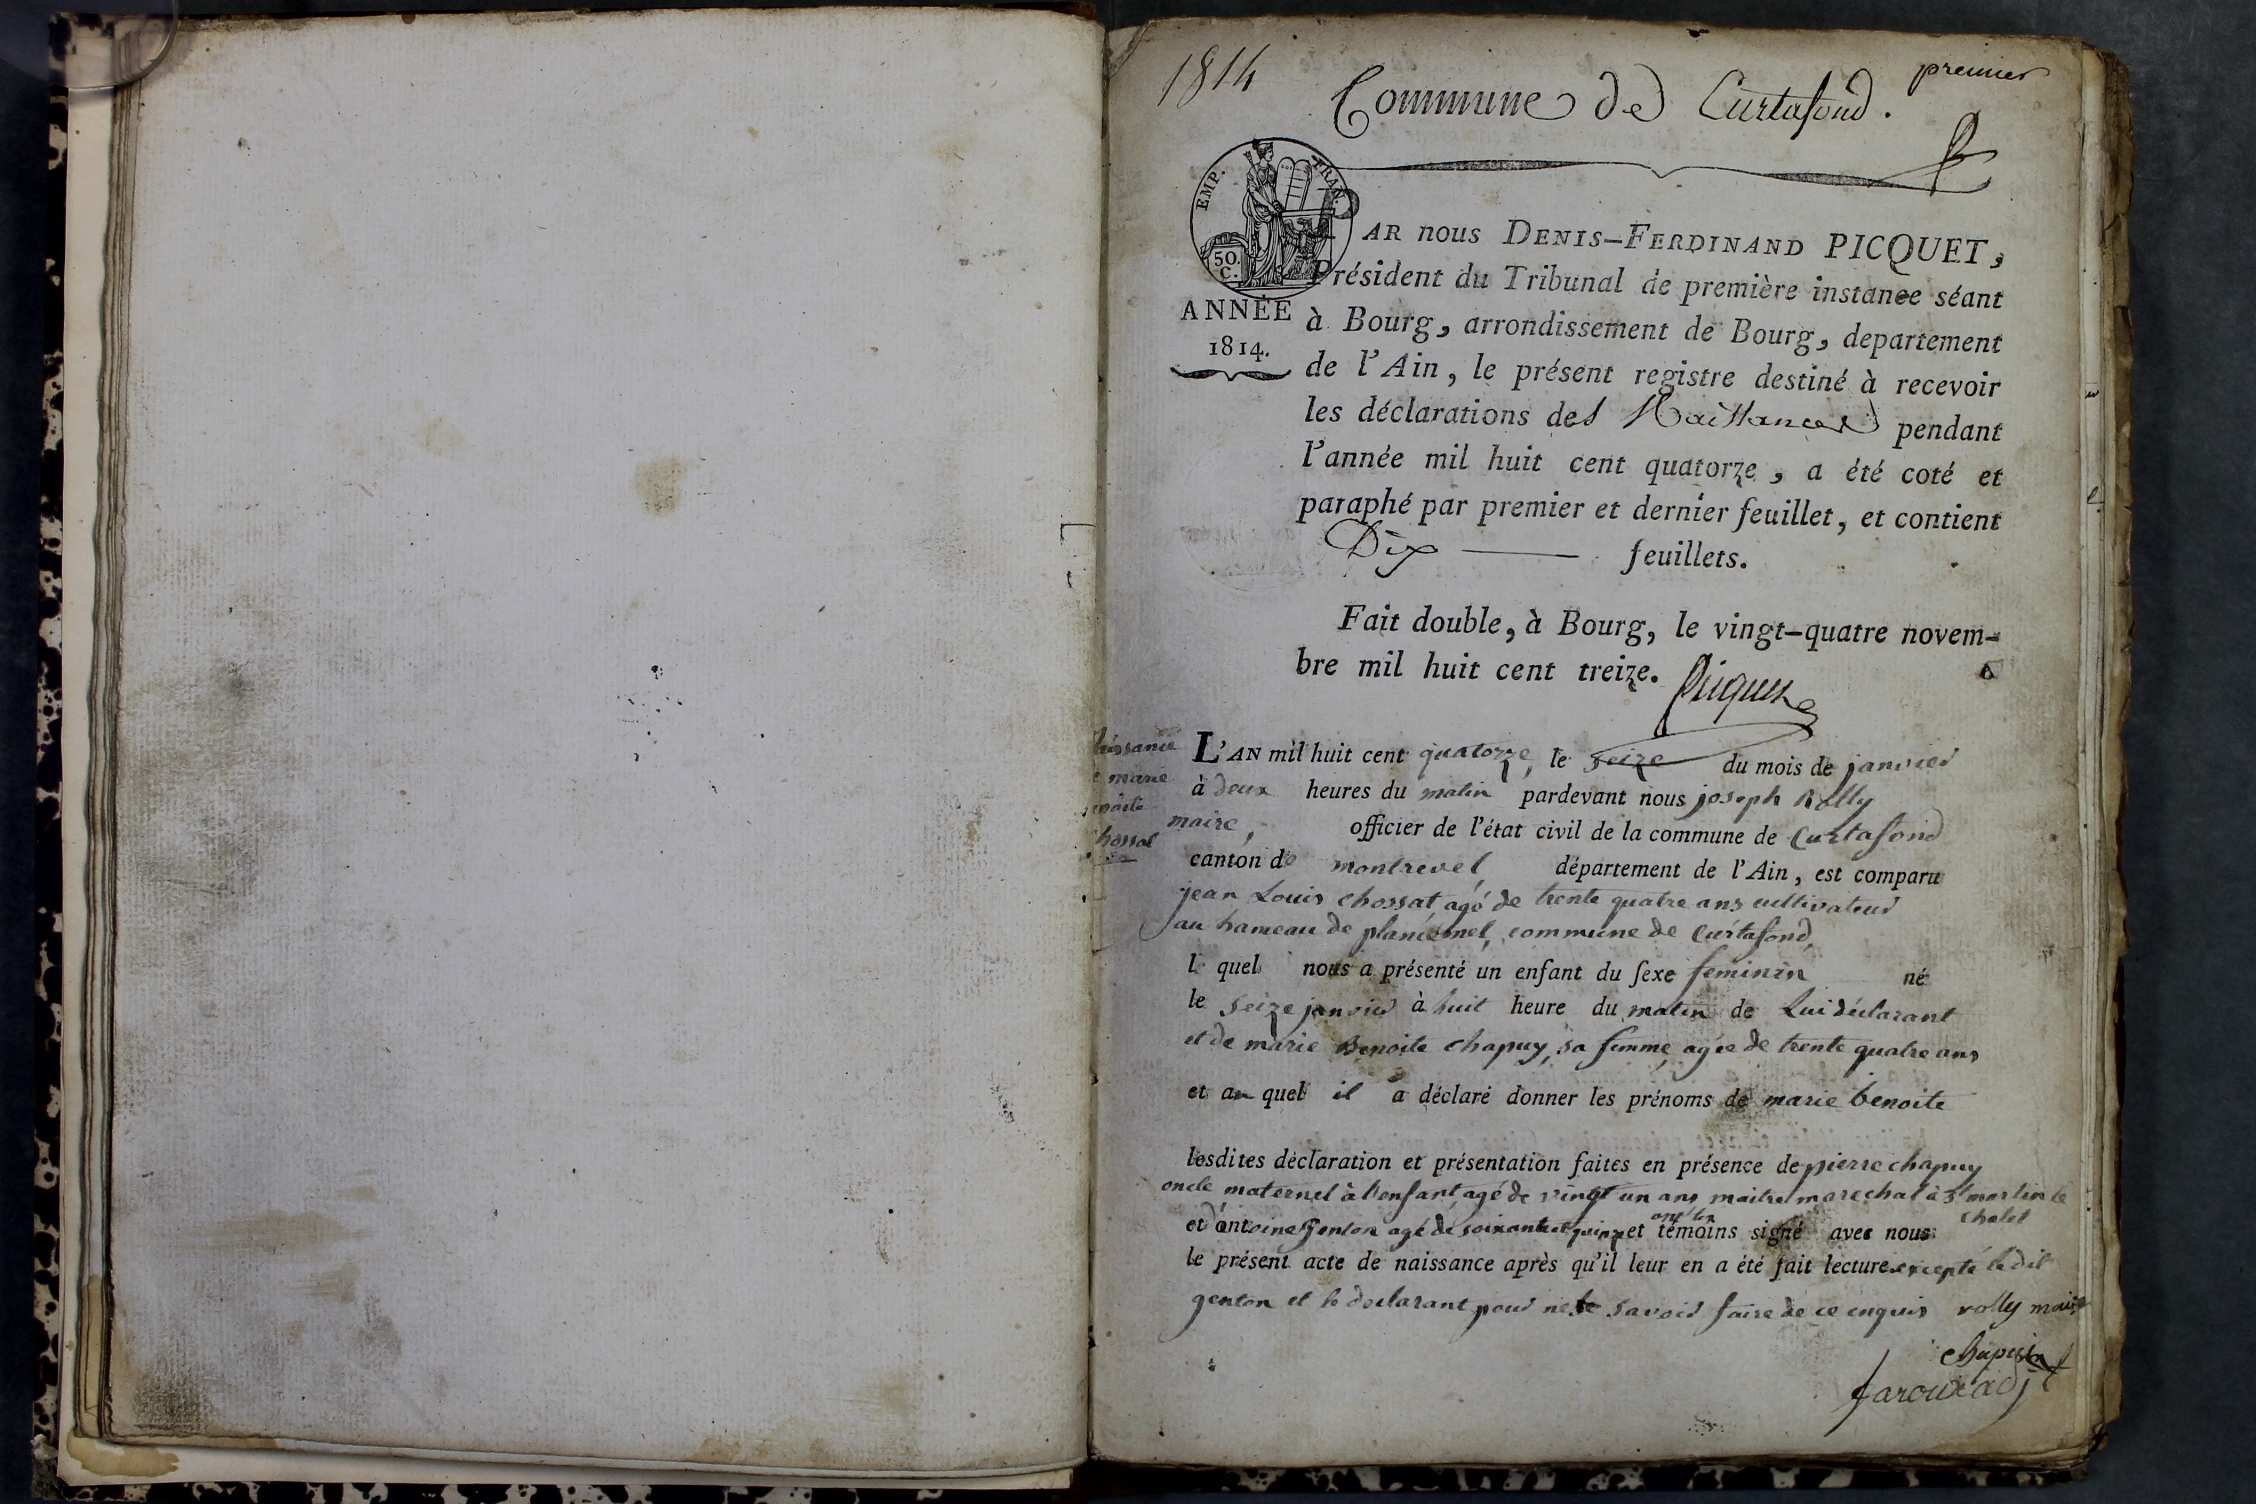 1814
premier
Commune de Curtafond.
EMP. FRAN.
50.
C.
ANNÉE
1814.
PAR nous DENIS-FERDINAND PICQUET,
Président du Tribunal de première instance séant
à Bourg, arrondissement de Bourg, departement
de l'Ain, le présent registre destiné à recevoir
les déclarations des Naissances pendant
l'année mil huit cent quatorze, a été coté et
paraphé par premier et dernier feuillet, et contient
Dix feuillets.
Fait double, à Bourg, le vingt-quatre novem-
bre mil huit cent treize. Picquet
marie
L'AN mil huit cent quatorze, le seize du mois de janvier
à deux heures du matin pardevant nous joseph Rolly
maire, officier de l'état civil de la commune de Curtafond
canton de montrevel, département de l'Ain, est comparu
jean Louis chossat agé de trente quatre ans cultivateur
au hameau de planémel, commune de Curtafond,
lequel nous a présenté un enfant du sexe feminin né
le seize janvier à huit heure du matin de Lui déclarant
et de marie Benoite chapuy, sa femme, agée de trente quatre ans
et au quel il a déclaré donner les prénoms de marie benoite
lesdites déclaration et présentation faites en présence de pierre chapuy
oncle maternel à l'enfant, agé de vingt un ans maitre marechal à St martin le
chatel
et d'antoine Genton agé de soixante et quinze et témoins signé avec nous
le présent acte de naissance après qu'il leur en a été fait lecture excepté ledit
genton et le declarant pour ne le savoir faire de ce enquis rolly maire
chapuis
faroux adjt